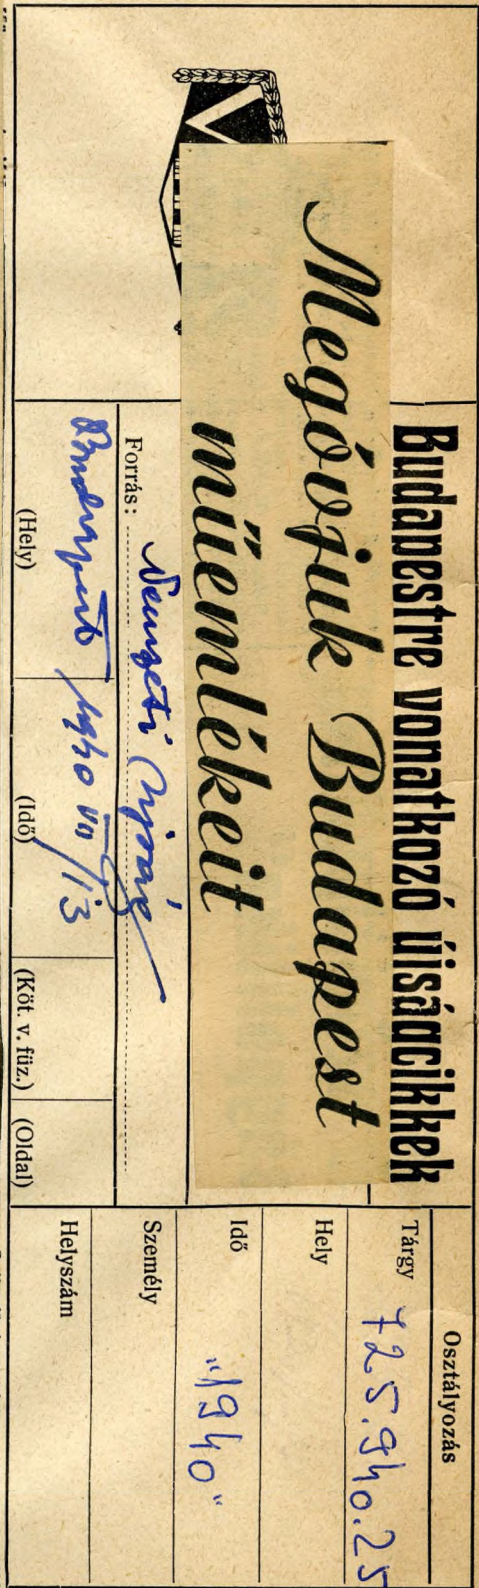 Budapestre vonatkozó újságcikkek
Megóvjuk Budapest
műemlékeit
Forrás: Nemzeti Újság
Budapest 1940 VII/13
(Hely) (Idő) (Köt. v. füz.) (Oldal)
Osztályozás
Tárgy 725.940.25
Hely
Idő "1940"
Személy
Helyszám